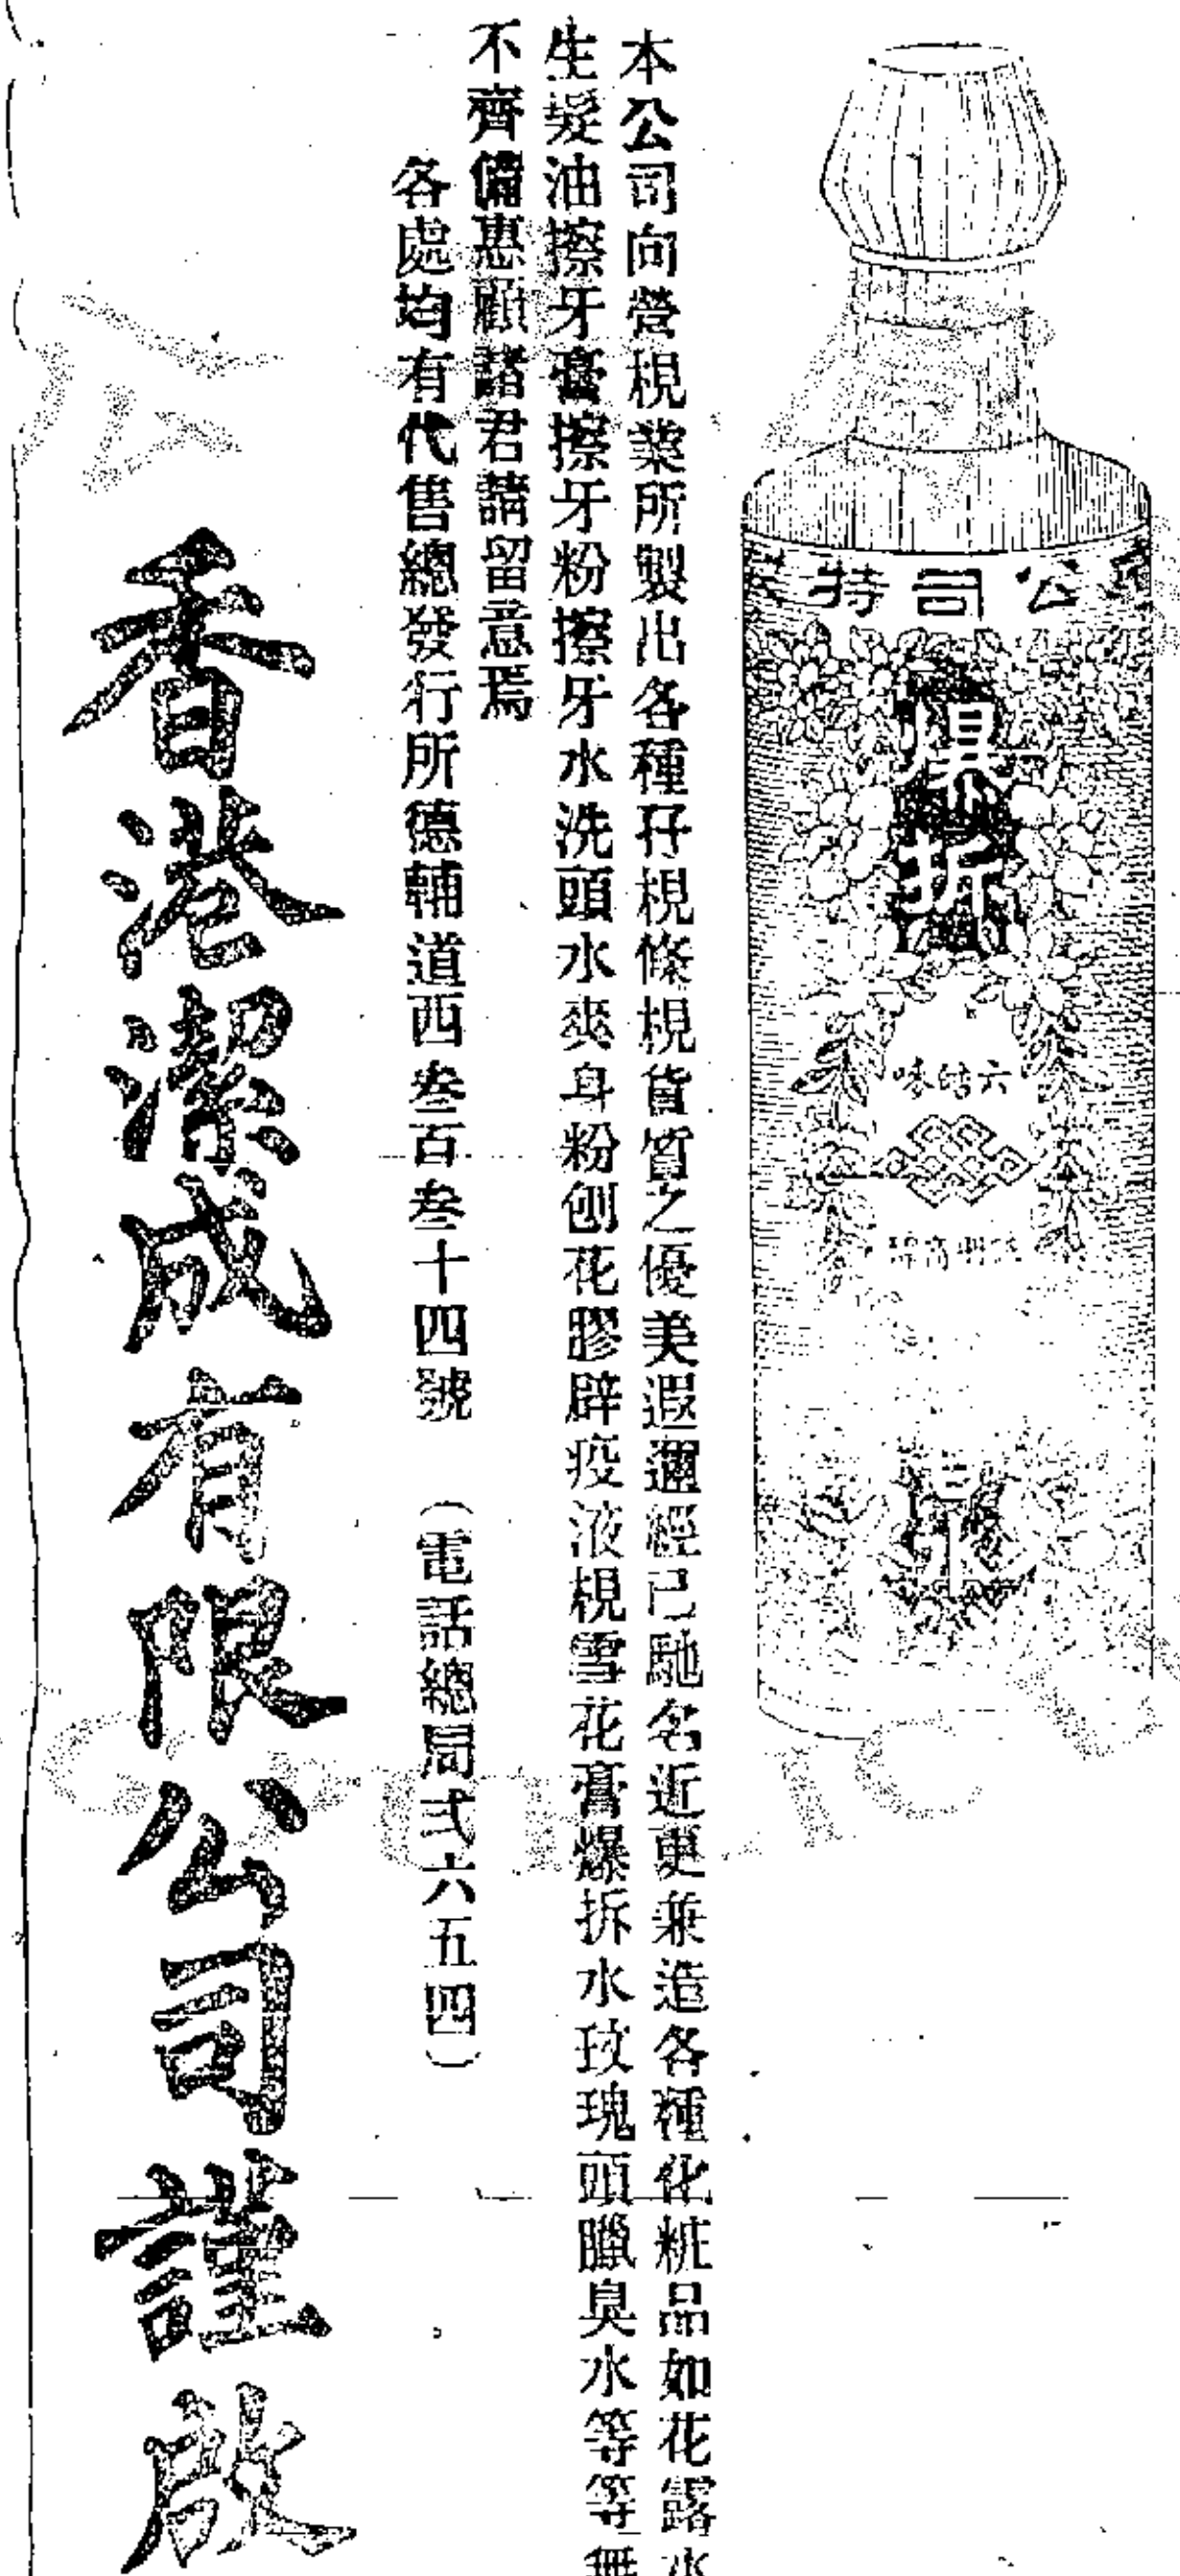 公司
爆拆
水
本公司向營梘業所製出各種孖梘條梘貨質之優美遐邇經已馳名近更兼造各種化粧品如花露水
生髮油擦牙膏擦牙粉擦牙水洗頭水爽身粉刨花膠辟疫液梘雪花膏爆拆水玫瑰頭臘臭水等等無
不齊備惠顧諸君請留意焉
各處均有代售總發行所德輔道西叁百叁十四號（電話總局弍六五四）
香港潔成有限公司謹啟